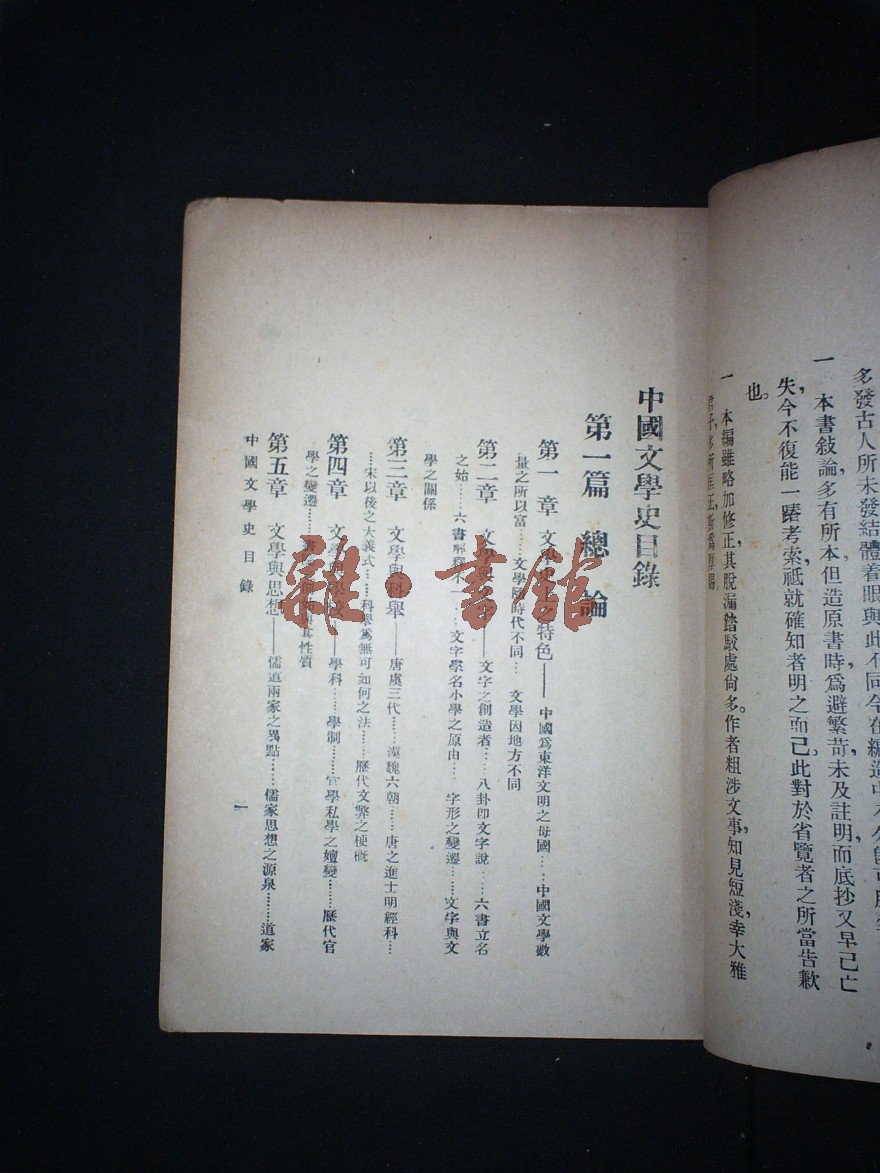 多發古人所未發結體着眼與此不同今在編造
一　本書敍論，多有所本，但造原書時，爲避繁苛，未及註明，而底抄又早已亡
失，今不復能一一考索，祗就確知者明之而已。此對於省覽者之所當告歉
也。
一　本編雖略加修正，其脫漏踳駁處尙多。作者粗涉文事，知見短淺，幸大雅
君子
中國文學史目錄
第一篇　總論
第一章　文學史上之特色——中國爲東洋文明之母國……中國文學數
量之所以富……文學隨時代不同…　文學因地方不同
第二章　文學與文字——文字之創造者……八卦卽文字說……六書立名
之始……六書解釋不一……文字學名小學之原由…　字形之變遷……文字與文
學之關係
第三章　文學與科舉——唐虞三代……漢魏六朝……唐之進士明經科…
…宋以後之大義式……科舉爲無可如何之法……歷代文弊之梗概
第四章　文學與學校——學科……學制……官學私學之嬗變……歷代官
學之變遷……書其性質
第五章　文學與思想——儒道兩家之異點……儒家思想之源泉……道家
中國文學史目錄
一
雜·書館